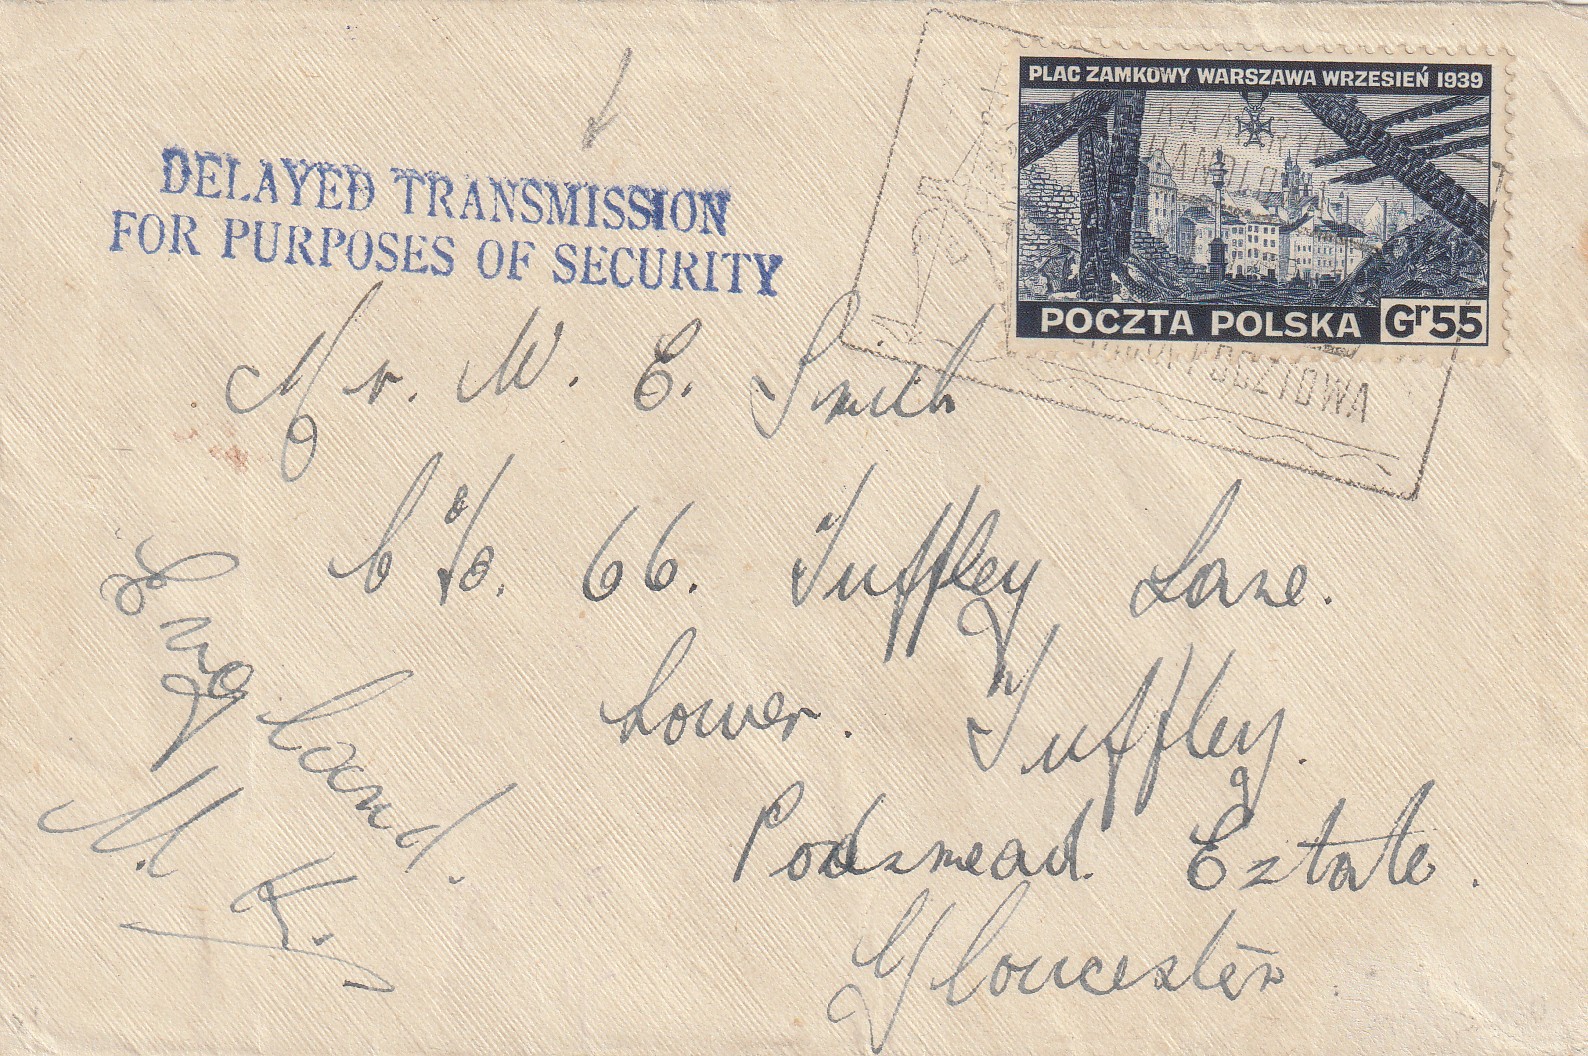 PLAC ZAMKOWY WARSZAWA WRZESIEŃ 1939
POCZTA POLSKA Gr55
POCZTOWA
DELAYED TRANSMISSION
FOR PURPOSES OF SECURITY
Mr. W. E. Smith
66. Tuffley Lane.
Lower. Tuffley.
Podsmead. Estate.
Gloucester
England.